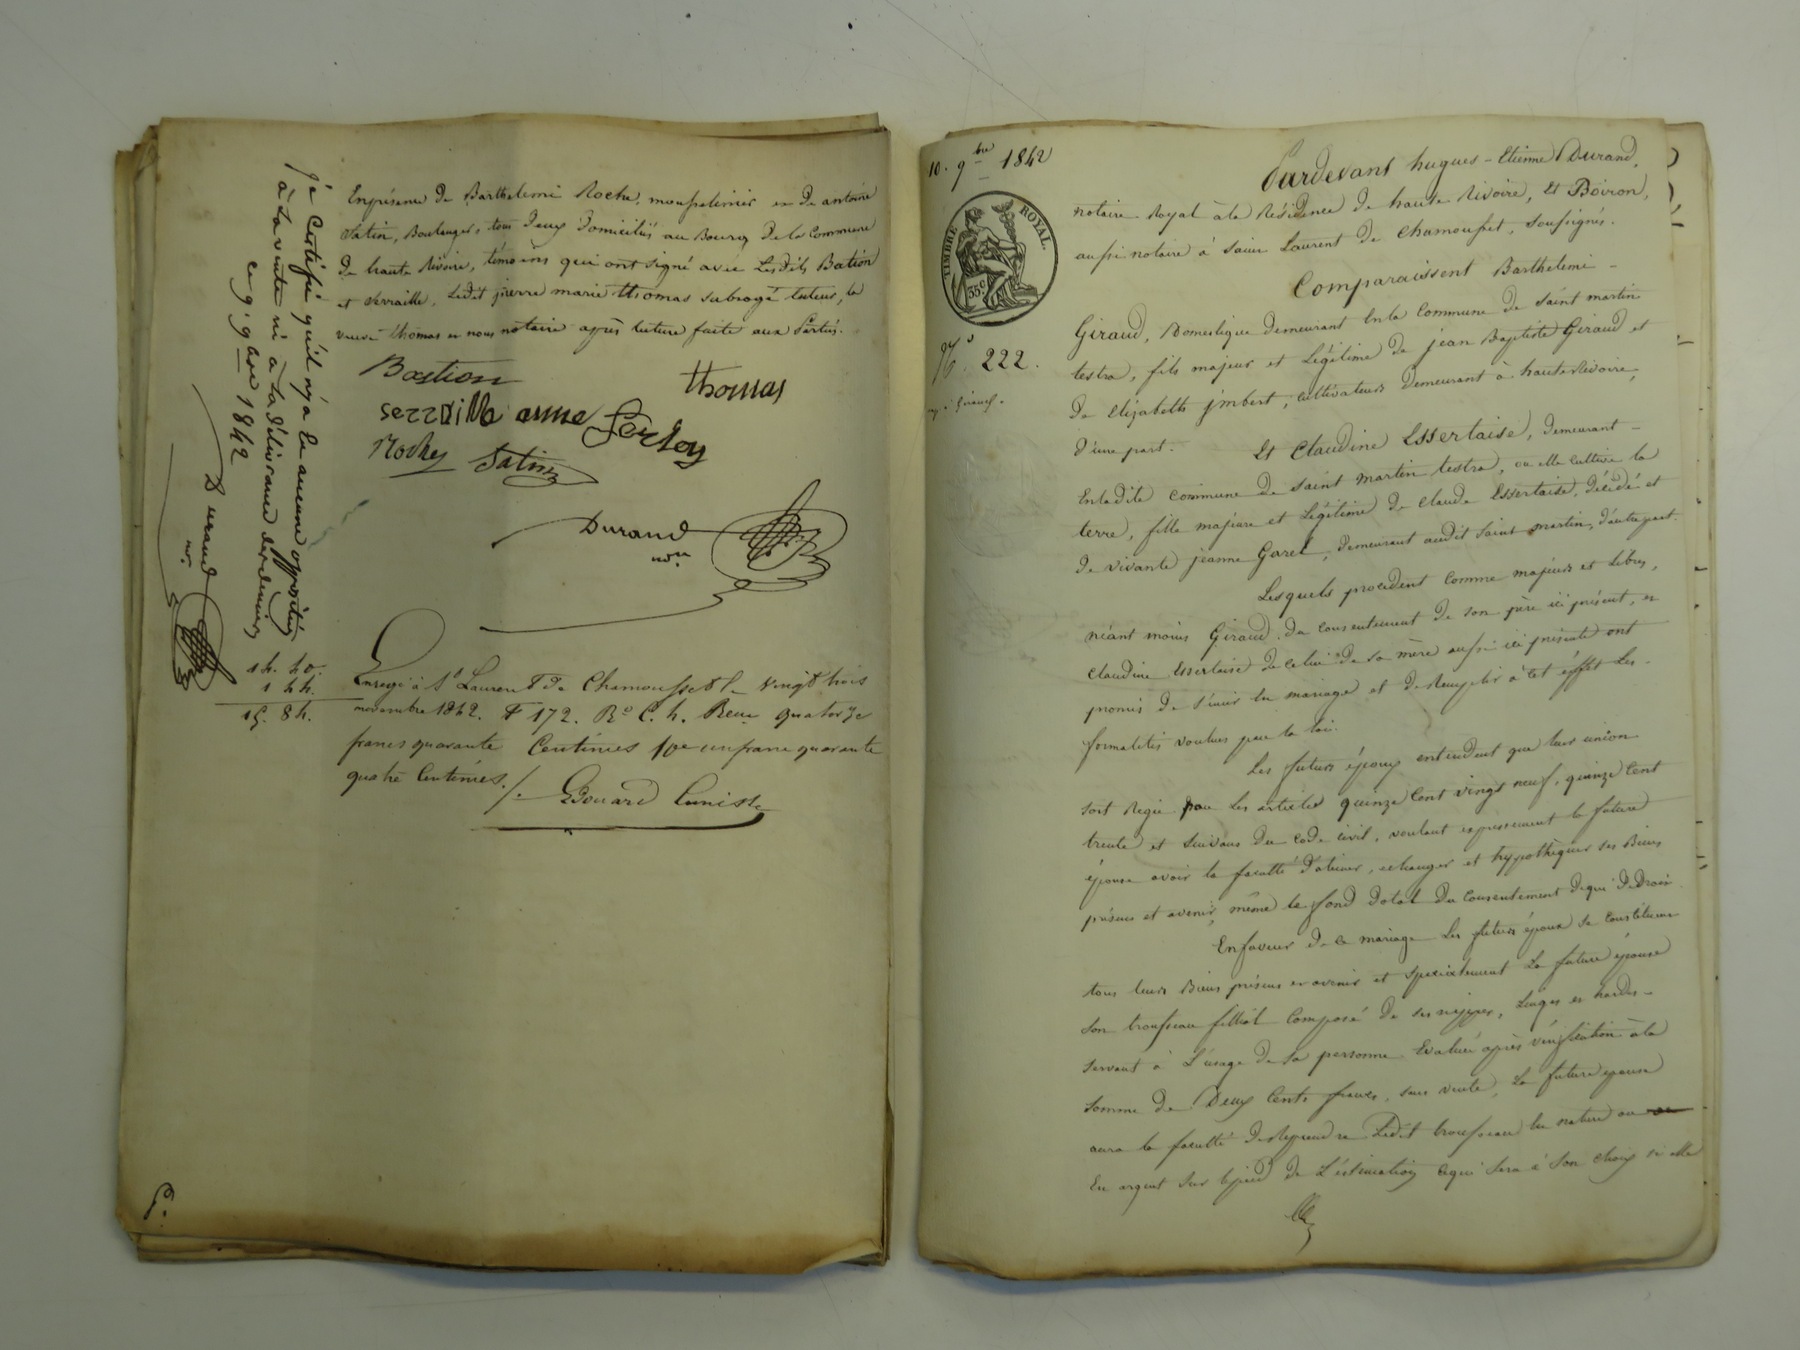 En présence de Barthelemi Roche, mousselinier et de antoine
Satin, Boulanger, tous Deux Domiciliés au Bourg De la Commune
De haute Rivoire, témoins qui ont signé avec Lesdits Bation
et Serraille, Ledit pierre marie thomas subrogé tuteur, la
veuve thomas et nous notaire après lecture faite aux Parties.
Bastion
thomas
serraille anne
Roche Satin
Durand
nore
Enregé à St Laurent De Chamousset le vingt trois
novembre 1842. F 172. Ro C. 4. Reçu quatorze
francs quarante Centimes 10e un franc quarante
quatre Centimes./.
Edouard
Je Certifie qu'il n'y a Eu aucune opposition
à la vente ni à La délivrance des deniers
ce 9. 9bre 1842
Durand
nore
14. 40.
1 44.
15. 84.
P.
10. 9bre 1842
TIMBRE ROYAL.
35c
No. 222.
Pardevant hugues-Etienne Durand,
notaire Royal à la Résidence De haute Rivoire, Et Boiron,
aussi notaire à Saint Laurent De Chamousset, soussignés.
Comparaissent Barthelemi
Giraud, Domestique demeurant En la Commune De Saint martin
lestra, fils majeur et Légitime De jean Baptiste Giraud et
De Elizabeth jmbert, cultivateurs demeurant à hauterivoire,
D'une part. Et Claudine Essertaise, demeurant
En ladite Commune De Saint Martin lestra, ou elle cultive la
terre, fille majeure et Légitime De Claude Essertaise, décédé et
De vivante jeanne Garel, demeurant audit Saint martin, d'autre part.
Lesquels procedent Comme majeurs et Libres,
néant moins Giraud du consentement De son père ici présent, et
Claudine Essertaise De celui De sa mère aussi ici présente ont
promis De s'unir En mariage et De Remplir à cet effet Les
formalités voulues par la loi.
Les futurs époux entendent que leur union
soit Régie par Les articles quinze Cent vingt neuf, quinze Cent
trente et suivans Du code civil, voulant expressement la future
épouse avoir la faculté d'aliéner, echanger et hypothèquer ses Biens
présens et avenir, même le fond Dotal Du Consentement De qui De Droit.
En faveur De ce mariage Les futurs époux se Constituent
tous leurs Biens présens et avenir et specialement La future épouse
son trousseau filliol Composé De ses nippes, Linges et hardes
servant à L'usage De sa personne Evalué après vérification à la
somme De Deux Cents francs, sans vente, La future épouse
aura la faculté De Reprendre Ledit trousseau En nature ou
En argent sur le pied De L'estimation Ce qui sera à son choix si elle